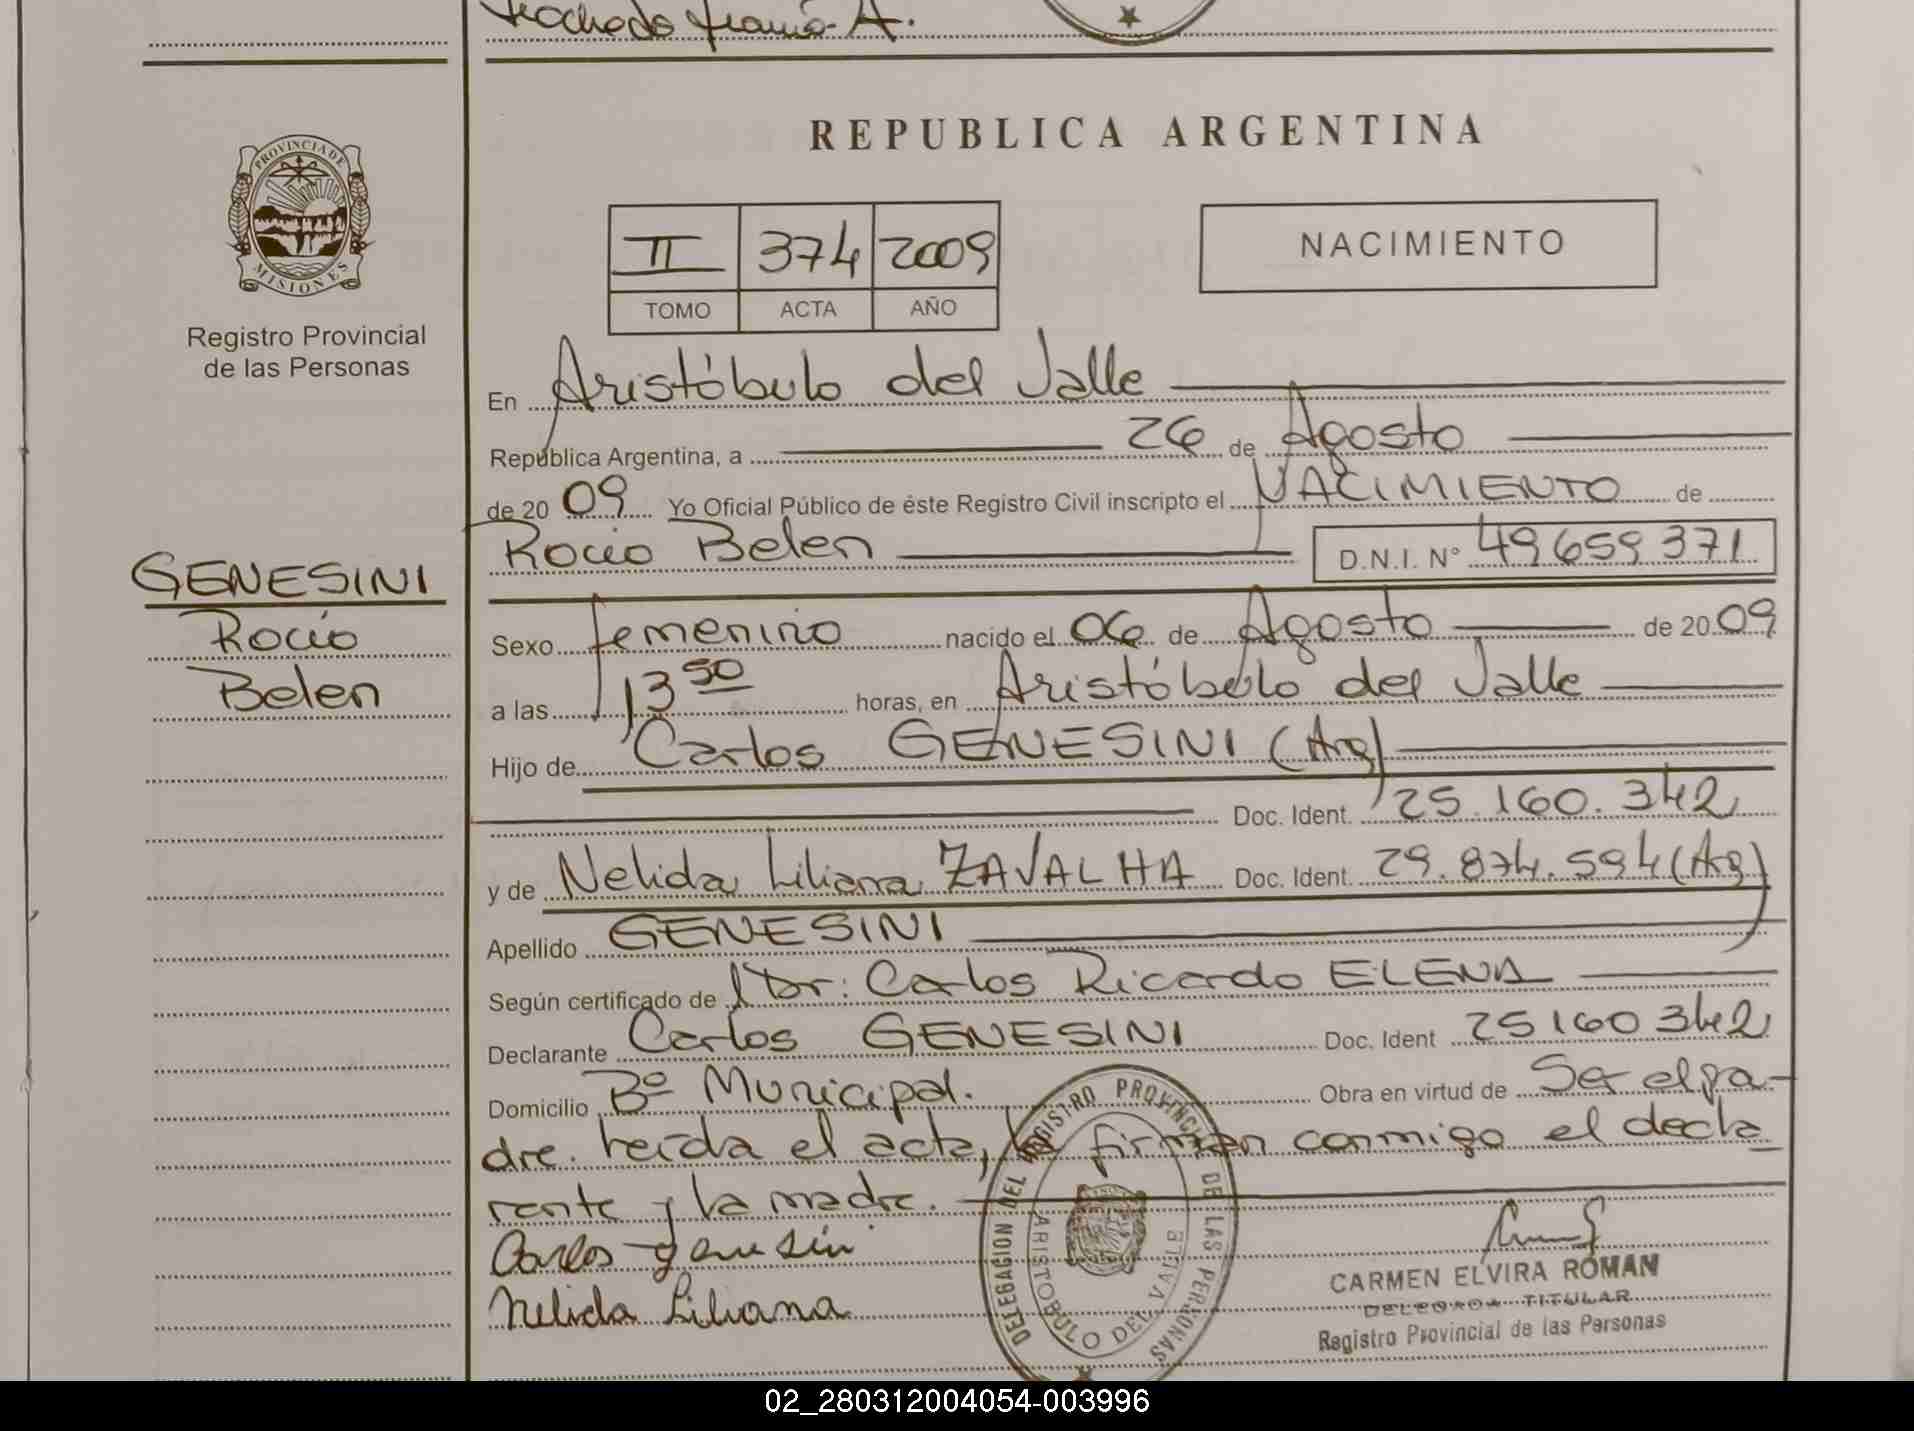 A.
REPUBLICA ARGENTINA
PROVINCIA DE
MISIONES
Registro Provincial
de las Personas
II 374 2009
TOMO ACTA AÑO
NACIMIENTO
En Aristóbulo del Valle
República Argentina, a 26 de Agosto
de 20 09 Yo Oficial Público de éste Registro Civil inscripto el NACIMIENTO de
Rocio Belen D.N.I. Nº 49659371
GENESINI
Rocio
Belen
Sexo femenino nacido el 06 de Agosto de 20 09
a las 13 50 horas, en Aristóbulo del Valle
Hijo de Carlos GENESINI (Arg)
Doc. Ident. 25.160.342
y de Nelida Liliana ZAVALHA Doc. Ident. 29.874.594 (Arg)
Apellido GENESINI
Según certificado de Dr: Carlos Ricardo ELENA
Declarante Carlos GENESINI Doc. Ident 25160342
Domicilio Bº Municipal. Obra en virtud de Ser el pa-
dre. Leída el acta, la firman conmigo el decla
rante y la madre.
Carlos genesini
Nelida Liliana
DELEGACION DEL REGISTRO PROVINCIAL DE LAS PERSONAS
ARISTOBULO DEL VALLE
CARMEN ELVIRA ROMAN
DELEGADA TITULAR
Registro Provincial de las Personas
02_280312004054-003996